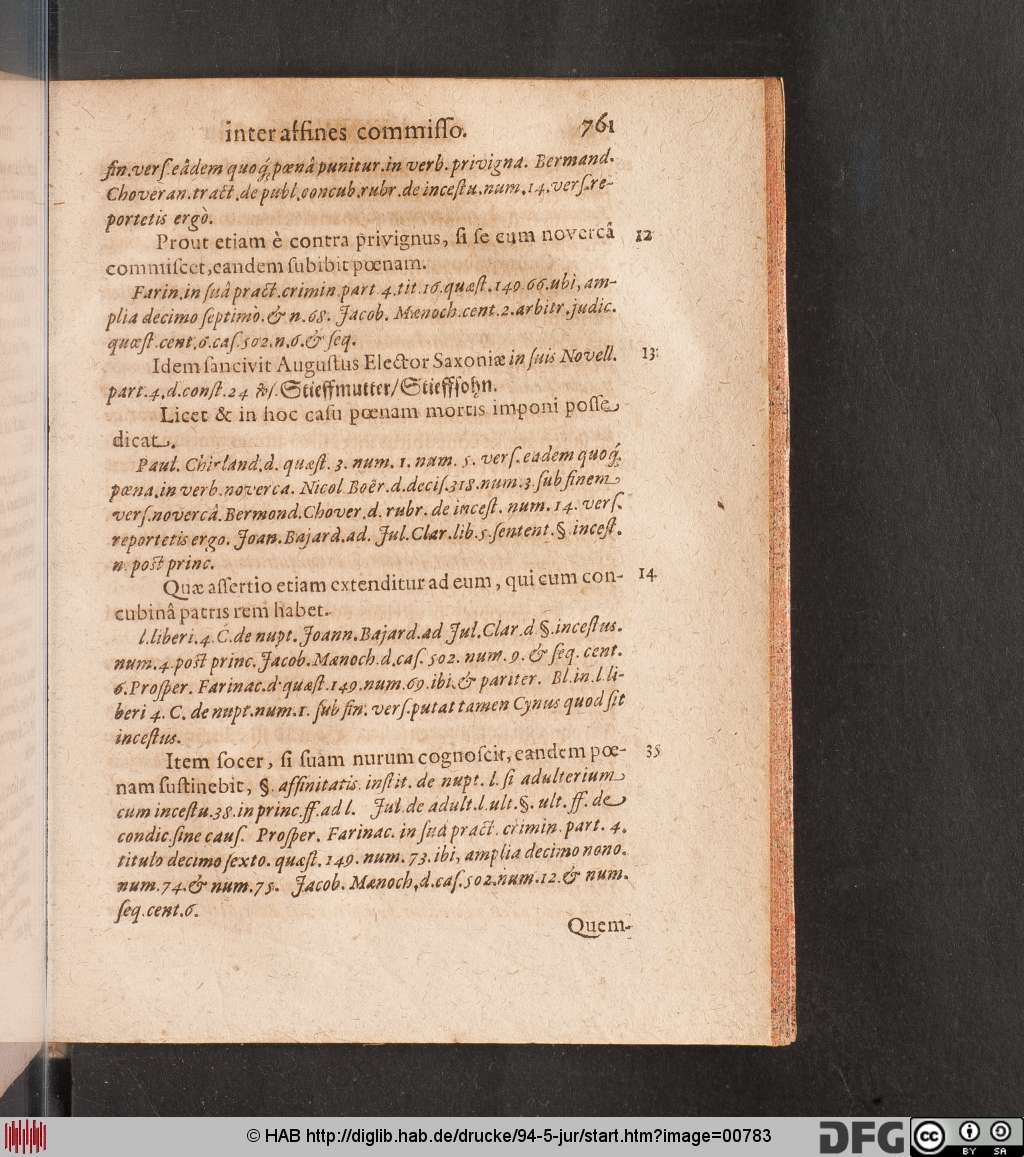 inter affines commiſſo. 761
fin.verſ.eâdem quoq́; pœnâ punitur.in verb.privigna. Bermand.
Choveran.tract.de publ.concub.rubr.de inceſtu.num.14.verſ.re-
portetis ergò.
Prout etiam è contra privignus, ſi ſe cum novercâ 12
commiſcet,eandem ſubibit pœnam.
Farin.in ſuâ pract.crimin.part 4.tit.16.quæſt.149.66.ubi, am-
plia decimo ſeptimò.& n.68. Jacob. Mænoch.cent.2.arbitr.judic.
quæſt.cent.6.caſ.502.n.6.& ſeq.
Idem ſancivit Auguſtus Elector Saxoniæ in ſuis Novell. 13
part.4.d.conſt.24 Stieffmutter/Stieffſohn.
Licet & in hoc caſu pœnam mortis imponi poſſe
dicat.
Paul. Chirland.d. quæſt. 3. num. 1. nam. 5. verſ. eadem quoq́;
pœna.in verb.noverca. Nicol Boër.d.deciſ.318.num.3.ſub finem
verſ.novercâ.Bermond.Chover.d. rubr. de inceſt. num. 14. verſ.
reportetis ergo. Joan.Bajard.ad. Jul.Clar.lib.5.ſentent.§ inceſt.
n. poſt princ.
Quæ aſſertio etiam extenditur ad eum, qui cum con- 14
cubinâ patris rem habet.
l.liberi.4.C.de nupt. Joann.Bajard.ad Jul.Clar.d.§.inceſtus.
num.4.poſt princ.Jacob.Mænoch.d.caſ. 502. num. 9. & ſeq. cent.
6.Proſper. Farinac.d.quæſt.149.num.69.ibi.& pariter. Bl.in.l.li-
beri 4. C. de nupt.num.1. ſub fin. verſ.putat tamen Cynus quod ſit
inceſtus.
Item ſocer, ſi ſuam nurum cognoſcit, eandem pœ- 35
nam ſuſtinebit, §. affinitatis. inſtit. de nupt. l. ſi adulterium
cum inceſtu.38.in princ.ff.ad l. Jul.de adult.l.ult.§. ult. ff. de
condic.ſine cauſ. Proſper. Farinac. in ſuâ pract. crimin. part. 4.
titulo decimo ſexto. quæſt. 149. num. 73. ibi, amplia decimo nono.
num.74.& num.75. Jacob. Mænoch.d.caſ.502.num.12.& num.
ſeq.cent.6.
Quem-
© HAB http://diglib.hab.de/drucke/94-5-jur/start.htm?image=00783
DFG cc BY SA